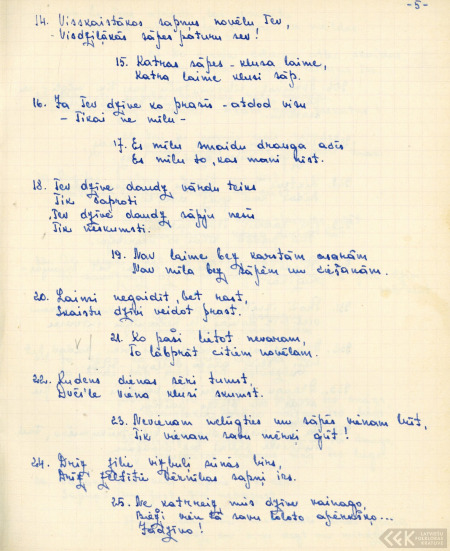 -5-
14. Visskaistākos sapņus novēlu Tev,
- Visdziļākās sāpes paturu sev!
15. Katras sāpes - klusa laime,
Katra laime klusi sāp.
16. Ja Tev dzīve ko prasīs - atdod visu
- Tikai ne mīlu -
17. Es mīlu smaidu drauga acīs
Es mīlu to, kas mani nīst.
18. Tev dzīve daudz vārdu teiks
Tik saproti
Tev dzīve daudz sāpju nesīs
Tik neskumsti.
19. Nav laime bez karstām asarām
Nav mīla bez sāpēm un ciešanām.
20. Laimi negaidīt, bet rast,
Skaistu dzīvi veidot prast.
21. Ko paši lietot nevaram,
To labprāt citiem novēlam.
22. Rudens dienas sēri tumst,
Dvēs'le viena klusi skumst.
23. Nevienam nelūgties un sāpēs vienam būt,
Tik vienam savu mērķi gūt!
24. Drīz zilie vizbuļi sūnās birs,
Drīz zeltītie bērnības sapņi irs.
25. Ne katrreiz mūs dzīve vainago,
Bieži vien tā savu loloto apērkšķo...
Jādzīvo!
LATVIEŠU
FOLKLORAS
KRĀTUVE